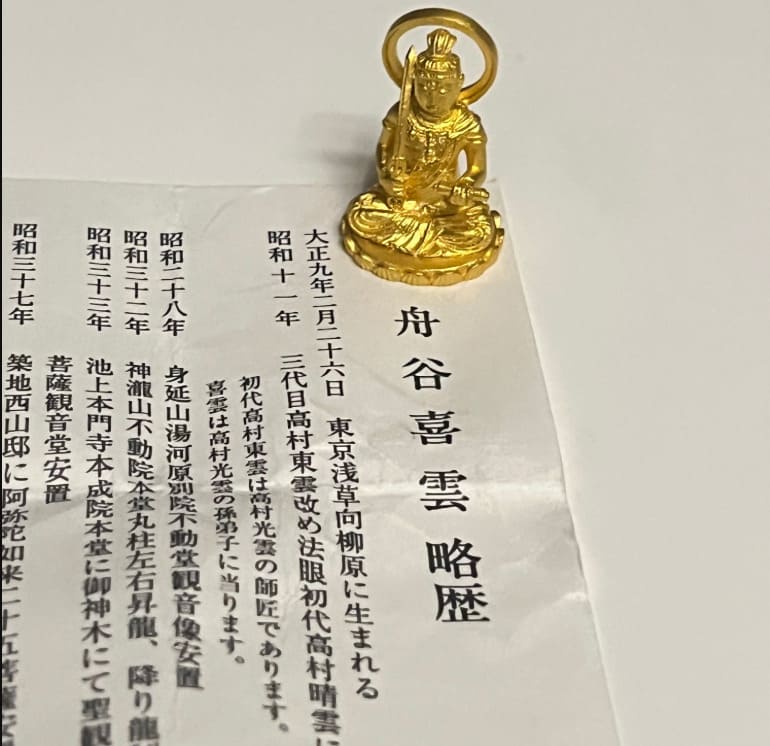 舟谷喜雲略歴
大正九年二月二十六日 東京浅草向柳原に生まれる
昭和十一年 三代目高村東雲改め法眼初代高村晴雲に
初代高村東雲は高村光雲の師匠であります。
喜雲は高村光雲の孫弟子に当ります。
昭和二十八年 身延山湯河原別院不動堂観音像安置
昭和三十二年 神瀧山不動院本堂丸柱左右昇龍、降り龍
昭和三十三年 池上本門寺本成院本堂に御神木にて聖観
菩薩観音堂安置
昭和三十七年 築地西山邸に阿弥陀如来二十五菩薩安